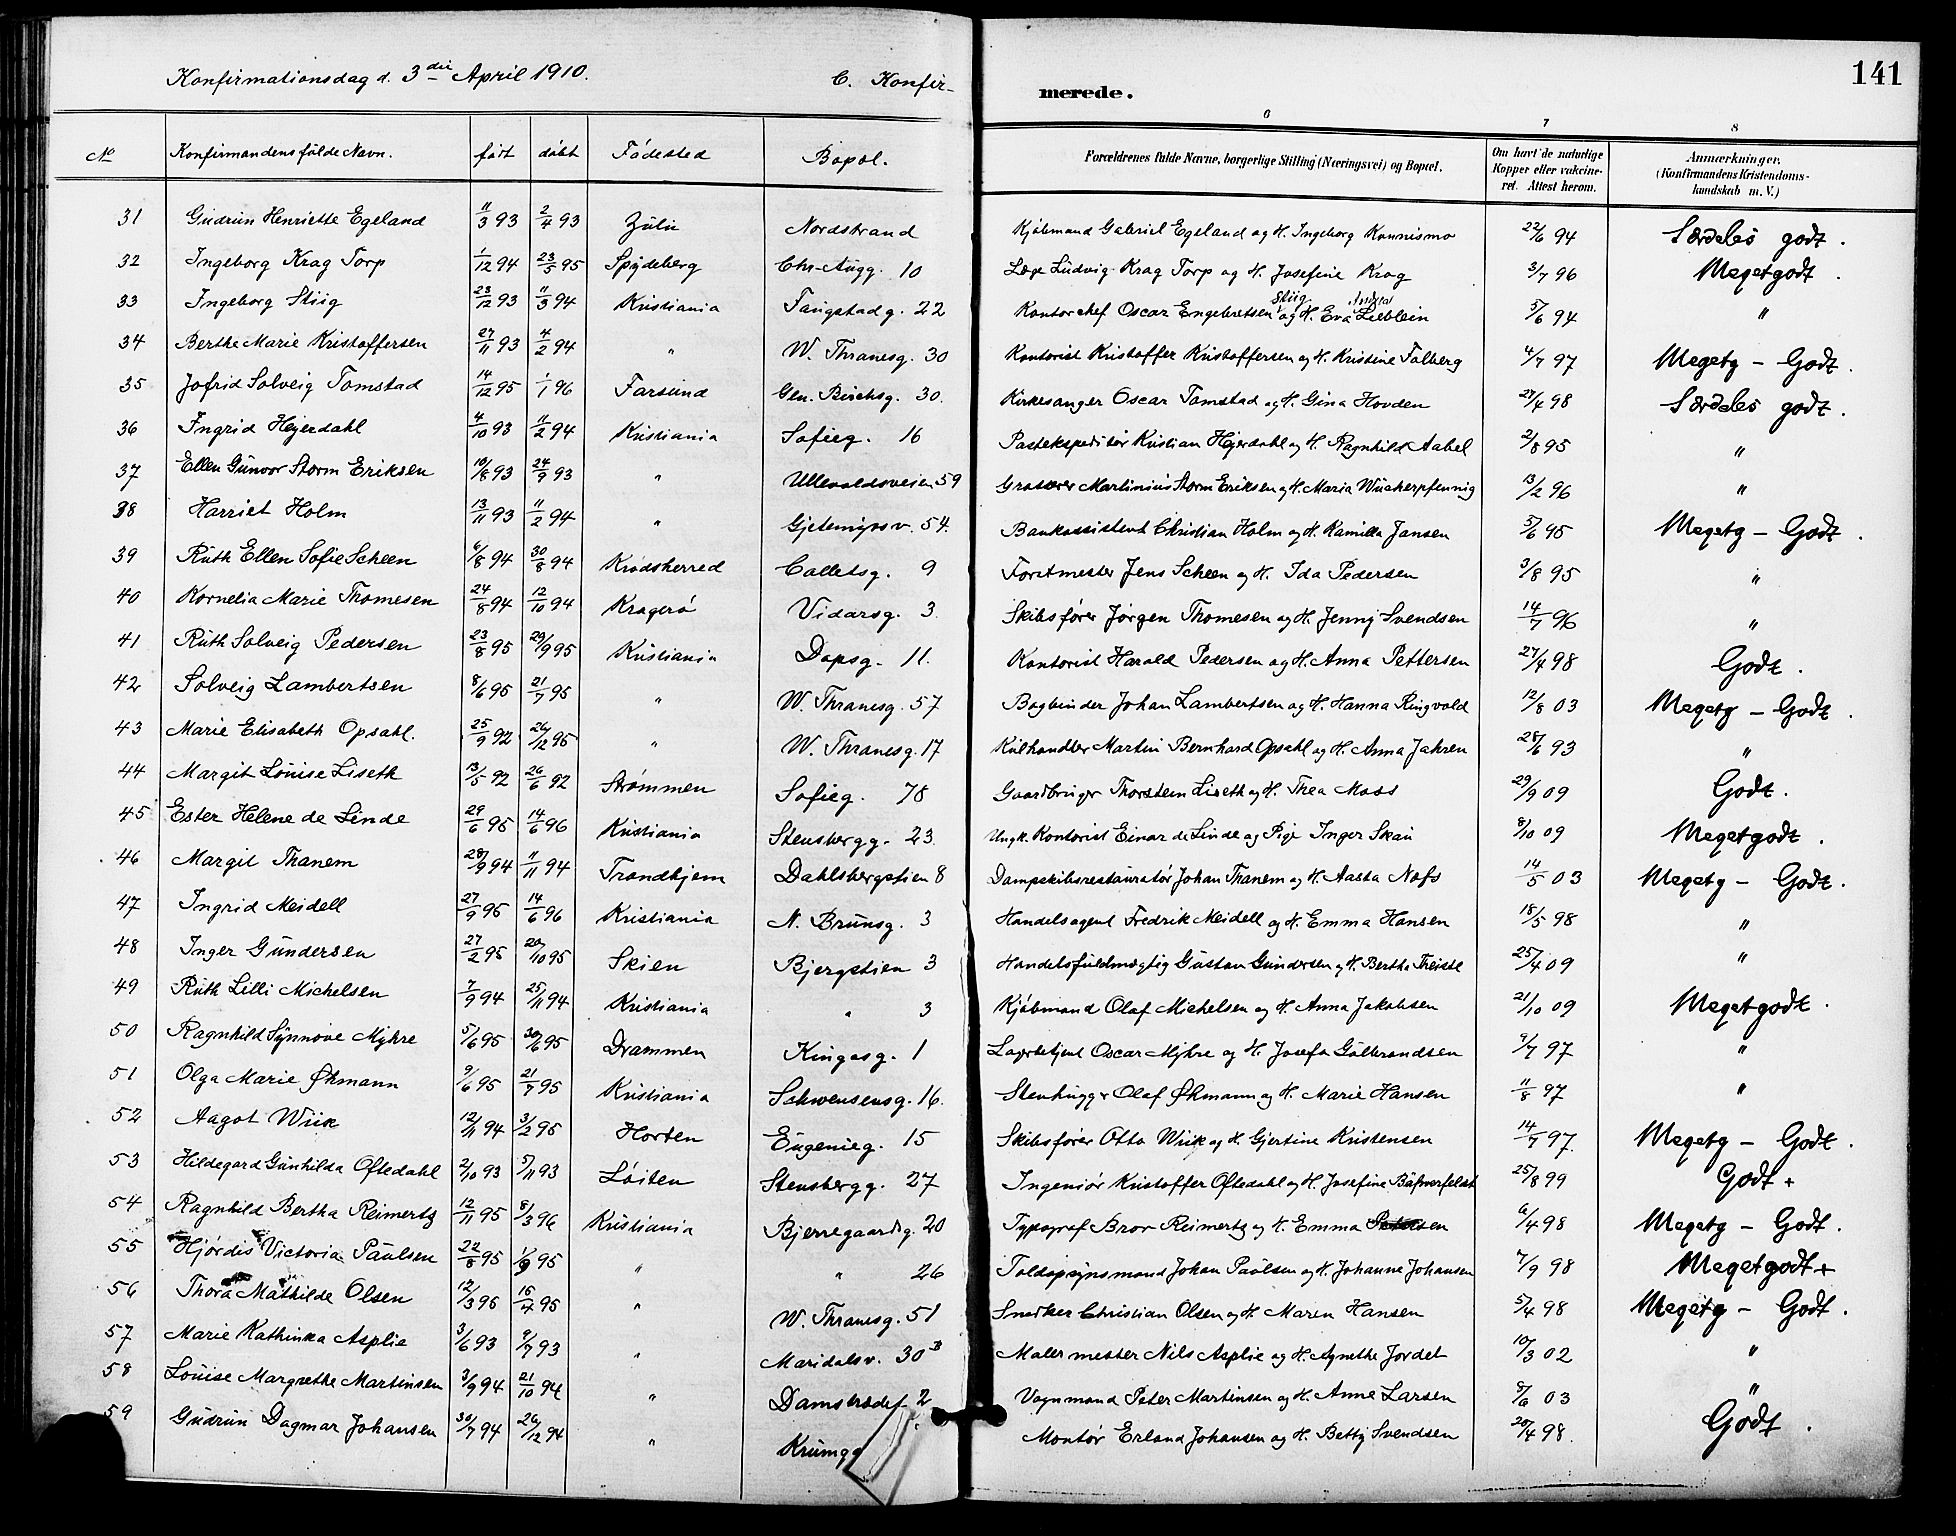 Konfirmationsdag d. 3die April 1910. C. Konfir-
merede. 141
6 7 8
No Konfirmandens fulde Navn. født døbt Fødested Bopæl. Forældrenes fulde Navne, borgerlige Stilling (Næringsvei) og Bopæl. Om havt de naturlige Kopper eller vakcineret. Attest herom. Anmærkninger. (Konfirmandens Kristendomskundskab m. V.)
31 Gudrun Henriette Egeland 11/3 93 2/4 93 Nordstrand Kjøbmand Gabriel Egeland og H. Ingeborg 22/6 94 Særdeles godt.
32 Ingeborg Krag Torp 1/12 94 23/5 95 Spydeberg Chr. Augg. 10 Læge Ludvig Krag Torp og H. Josefine Krag 3/7 96 Megetgodt.
33 Ingeborg Stiig 23/12 93 11/3 94 Kristiania Fougstadg. 22 Kontorchef Oscar Engebretsen Stiig og H. Eva Lieblein 5/6 94 "
34 Berthe Marie Kristoffersen 27/11 93 4/2 94 " W. Thranesg. 30 Kontorist Kristoffer Kristoffersen og H. Kristine Folberg 4/7 97 Megetg - Godt.
35 Jofrid Solveig Tomstad 14/12 95 1/1 96 Farsund Gen. Birchsg. 30. Kirkesanger Oscar Tomstad og H. Gina Hovden 27/4 98 Særdeles godt.
36 Ingrid Hejerdahl 4/10 93 11/2 94 Kristiania Sofieg. 16 Postekspeditør Kristian Hejerdahl og H. Ragnhild Aabel 2/8 95 "
37 Ellen Gunvor Storm Eriksen 10/8 93 24/9 93 " Ullevoldsveien 59 Grosserer Martinius Storm Eriksen og H. Maria Wücherpfennig 13/2 96 "
38 Harriet Holm 13/11 93 11/2 94 " Gjetemyrsv. 54. Bankassistent Christian Holm og H. Kamilla Jansen 5/6 95 Megetg - Godt.
39 Ruth Ellen Sofie Scheen 6/8 94 30/8 94 Krødsherred Colletsg. 9 Forstmester Jens Scheen og H. Ida Pedersen 3/8 95 "
40 Kornelia Marie Thomesen 24/8 94 12/10 94 Kragerø Vidarsg. 3. Skibsfører Jørgen Thomesen og H. Jenny Svendsen 14/7 96 "
41 Ruth Solveig Pedersen 23/8 95 29/9 95 Kristiania Dopsg. 11. Kontorist Harald Pedersen og H. Anna Pettersen 27/4 98 Godt.
42 Solveig Lambertsen 8/6 95 21/7 95 " W. Thranesg. 57 Bogbinder Johan Lambertsen og H. Hanna Ringvold 12/8 03 Megetg - Godt.
43 Marie Elisabeth Opsahl. 25/9 92 26/12 95 " W. Thranesg. 17 Kulhandler Martin Bernhard Opsahl og H. Anna Jahren 28/6 93 "
44 Margit Louise Liseth 13/5 92 26/6 92 Strømmen Sofieg. 78 Gaardbruger Thorstein Liseth og H. Thea Moss 29/9 09 Godt.
45 Ester Helene de Linde 29/6 95 14/6 96 Kristiania Stensbergg. 23. Ungk. Kontorist Einar de Linde og Pige Inger Skau 8/10 09 Megetgodt.
46 Margit Thanem 28/9 94 11/11 94 Trondhjem Dahlsbergstien 8 Dampskibsrestauratør Johan Thanem og H. Aasta 14/5 03 Megetg - Godt.
47 Ingrid Meidell 27/9 95 14/6 96 Kristiania N. Brunsg. 3 Handelsagent Fredrik Meidell og H. Emma Hansen 18/5 98 "
48 Inger Gundersen 27/2 95 20/10 95 Skien Bjergstien 3 Handelsfuldmægtig Gustav Gundersen og H. Bertha Theiste 25/4 09 "
49 Ruth Lilli Michelsen 7/9 94 25/11 94 Kristiania " 3 Kjøbmand Olaf Michelsen og H. Anna Jakobsen 21/10 09 Megetgodt.
50 Ragnhild Synnøve Myhre 5/6 95 30/6 95 Drammen Kingosg. 1 Lagerbetjent Oscar Myhre og H. Josefa Gulbrandsen 9/7 97 "
51 Olga Marie Øhmann 9/6 95 21/7 95 Kristiania Schwensensg. 16. Stenhugger Olaf Øhmann og H. Marie Hansen 11/8 97 "
52 Aagot Wiik 12/11 94 3/2 95 Horten Eugenieg. 15 Skibsfører Otto Wiik og H. Gjertine Kristensen 14/7 97. Megetg - Godt.
53 Hildegard Gunhilda Oftedahl 2/10 93 5/11 93 Løiten Stensbergg. 27 Ingeniør Kristoffer Oftedahl og H. Josefine 25/8 99 Godt +
54 Ragnhild Bertha Reimertz 12/11 95 8/3 96 Kristiania Bjerregaardsg. 20 Typograf Bror Reimertz og H. Emma 6/4 98 Megetg - Godt.
55 Hjørdis Victoria Paulsen 22/8 95 1/9 95 " " 26 Toldopsynsmand Johan Paulsen og H. Johanne Johansen 7/9 98 Megetgodt +
56 Thora Mathilde Olsen 12/3 95 15/4 95 " W. Thranesg. 51 Snedker Christian Olsen og H. Maren Hansen 5/4 98 Megetg - Godt.
57 Marie Kathinka Asplie 3/6 93 9/7 93 " Maridalsv. 30 B Malermester Nils Asplie og H. Agnethe Jordet 10/3 02 "
58 Louise Margrethe Martinsen 3/9 94 21/10 94 " 2 Vognmand Peter Martinsen og H. Anne Larsen 8/6 03 "
59 Gudrun Dagmar Johansen 30/7 94 26/12 94 " Krumg Montør Erland Johansen og H. Betty Svendsen 20/4 98. Godt.